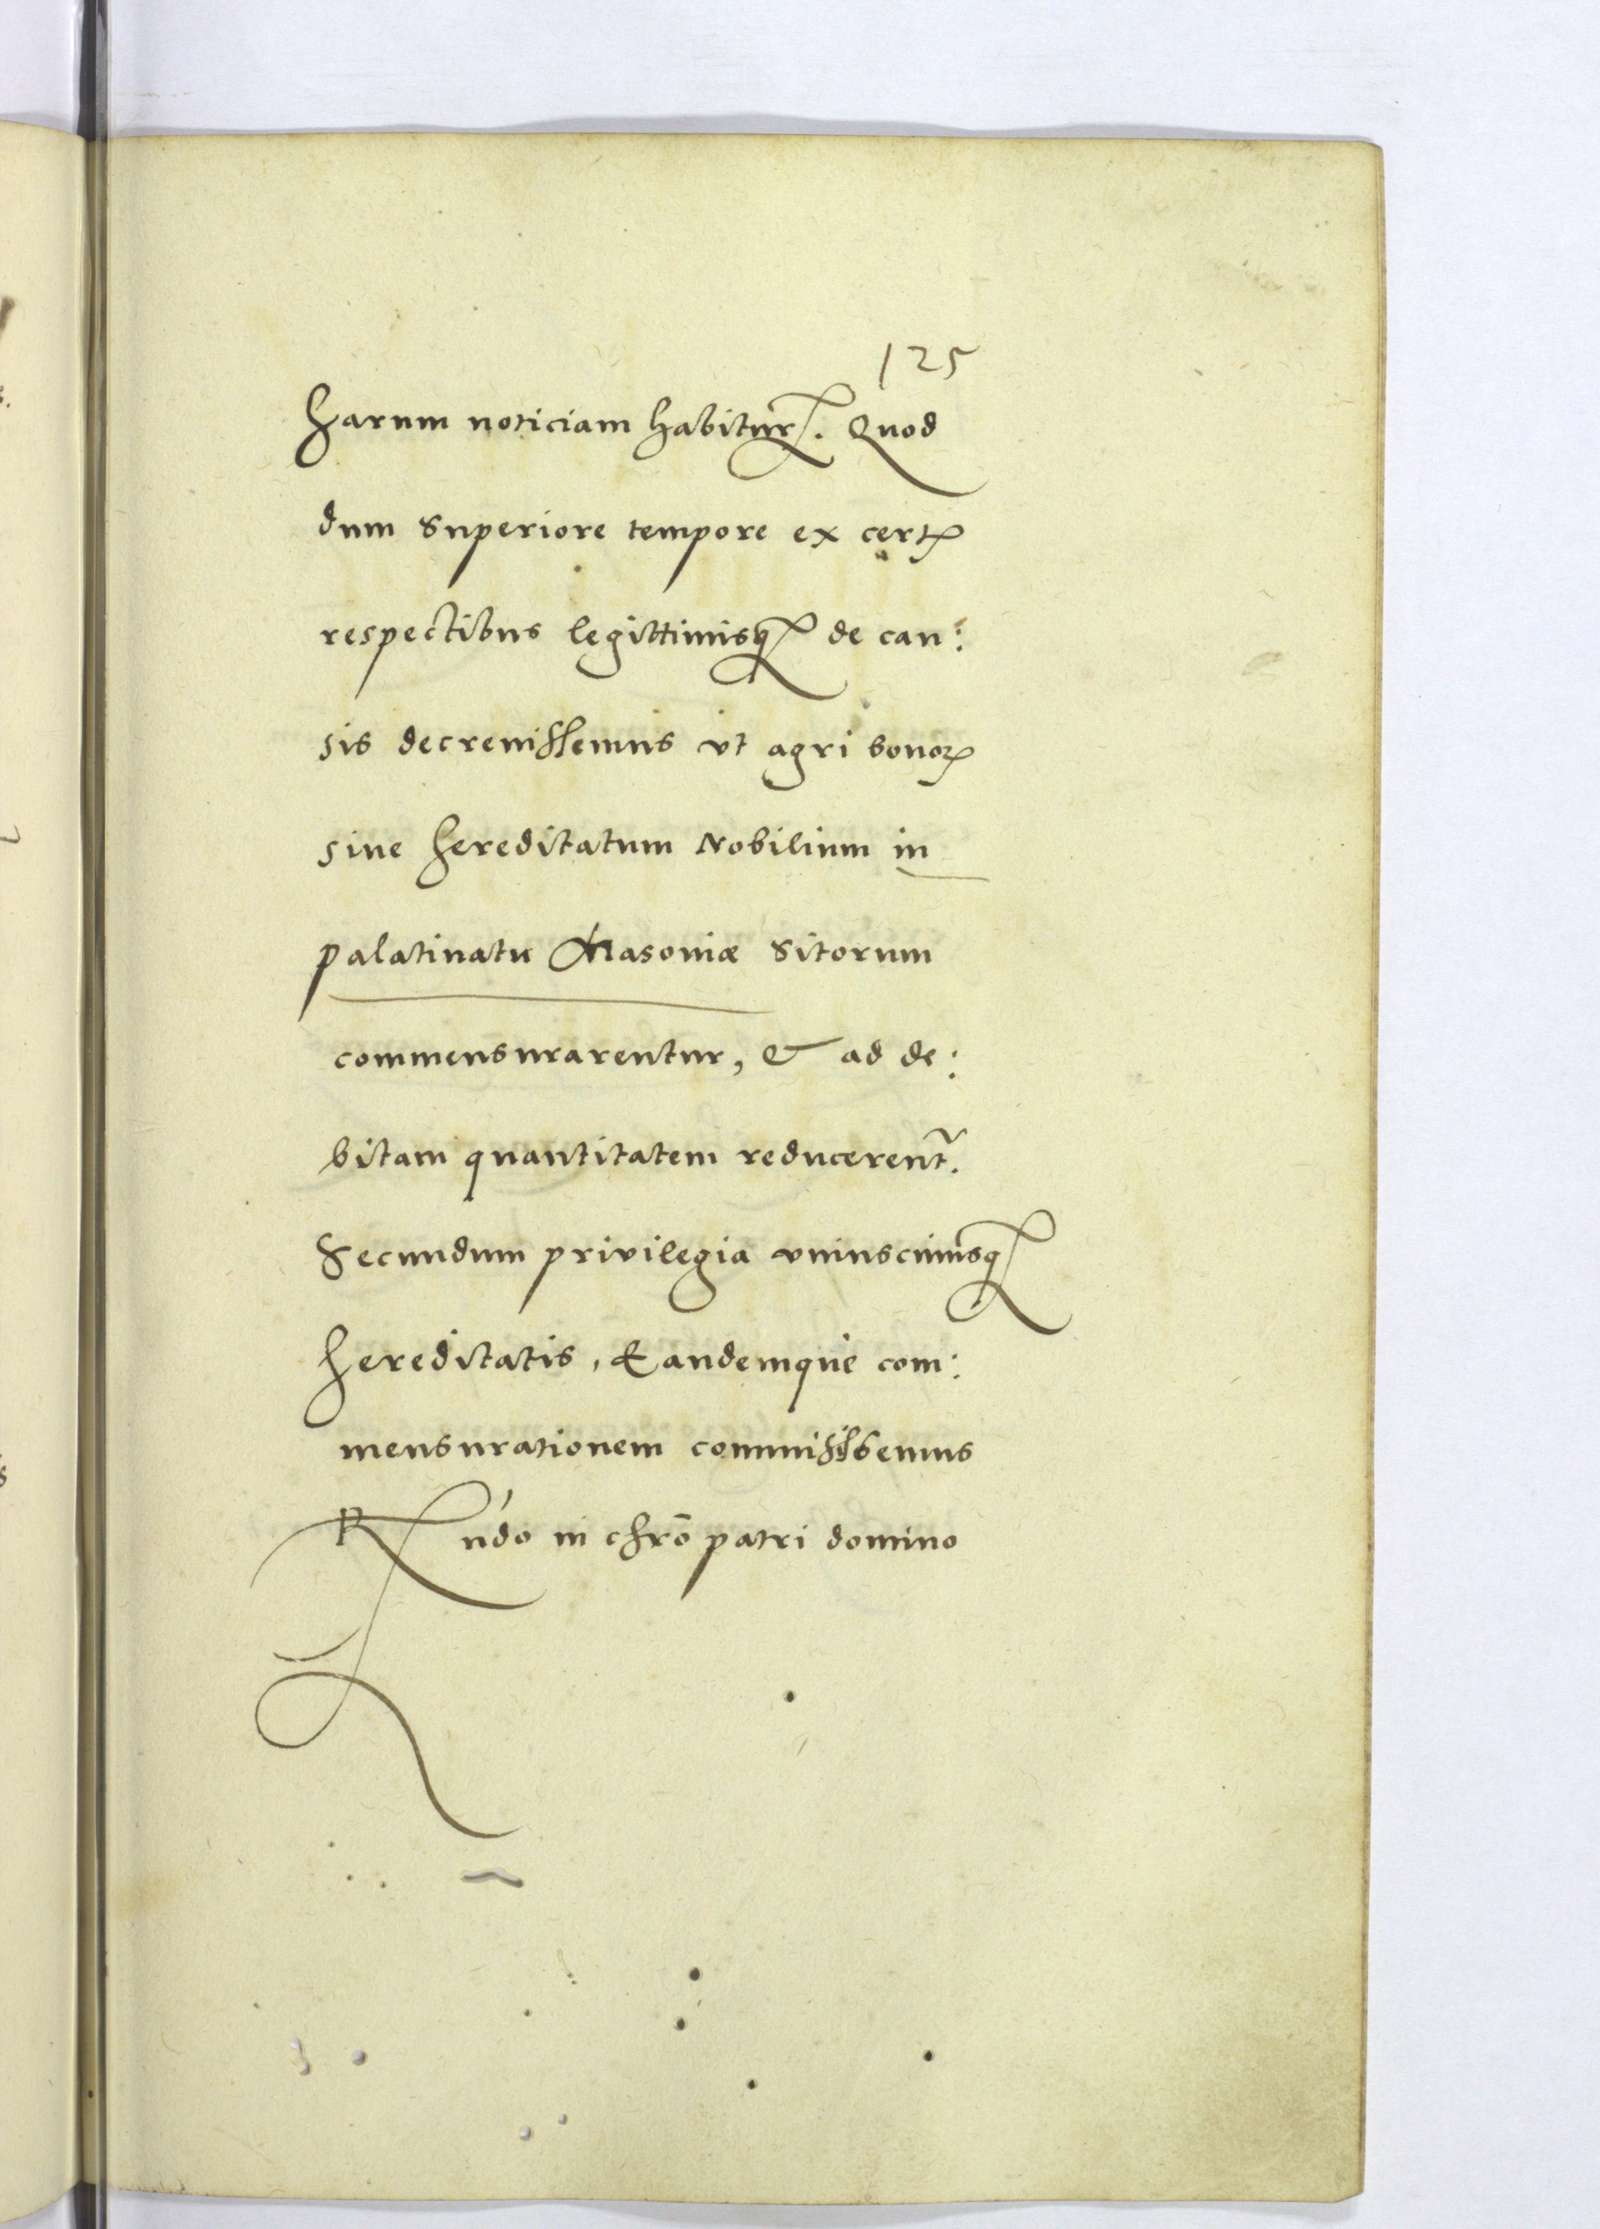 125
harum noticiam habitur. Quod
dum Superiore tempore ex cert
respectibus legittimisq de cau:
sis decreuissemus vt agri bonor
siue hereditatum Nobilium in
palatinatu Masouiæ Sitorum
commensurarentur, & ad de:
bitam quantitatem reducerent.
Secundum privilegia vniuscuiusq
hereditatis, Eandemque com:
mensurationem commissemus
Rndo in chro patri domino